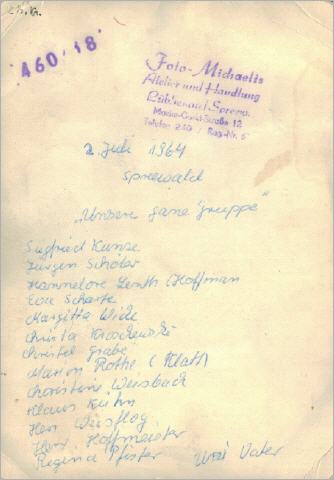 460·18
Foto-Michaelis
Atelier und Handlung
Lübbenau-Spreew.
Maxim-Gorki-Straße 12
Telefon 240 / Reg-Nr. 5
2. Juli 1964
Spreewald
„Unsere ganze Gruppe"
Siegfried Kunze
Jürgen Schöter
Hannelore Zenth (Hoffman
Eva Scharfe
Margitta Wide
Christa
Christel Grabe
Marion Rothe (Klatt)
Christine Weisbach
Klaus Kühn
Herr Weisflog
Herr Hoffmeister
Regina Pfister und Vater